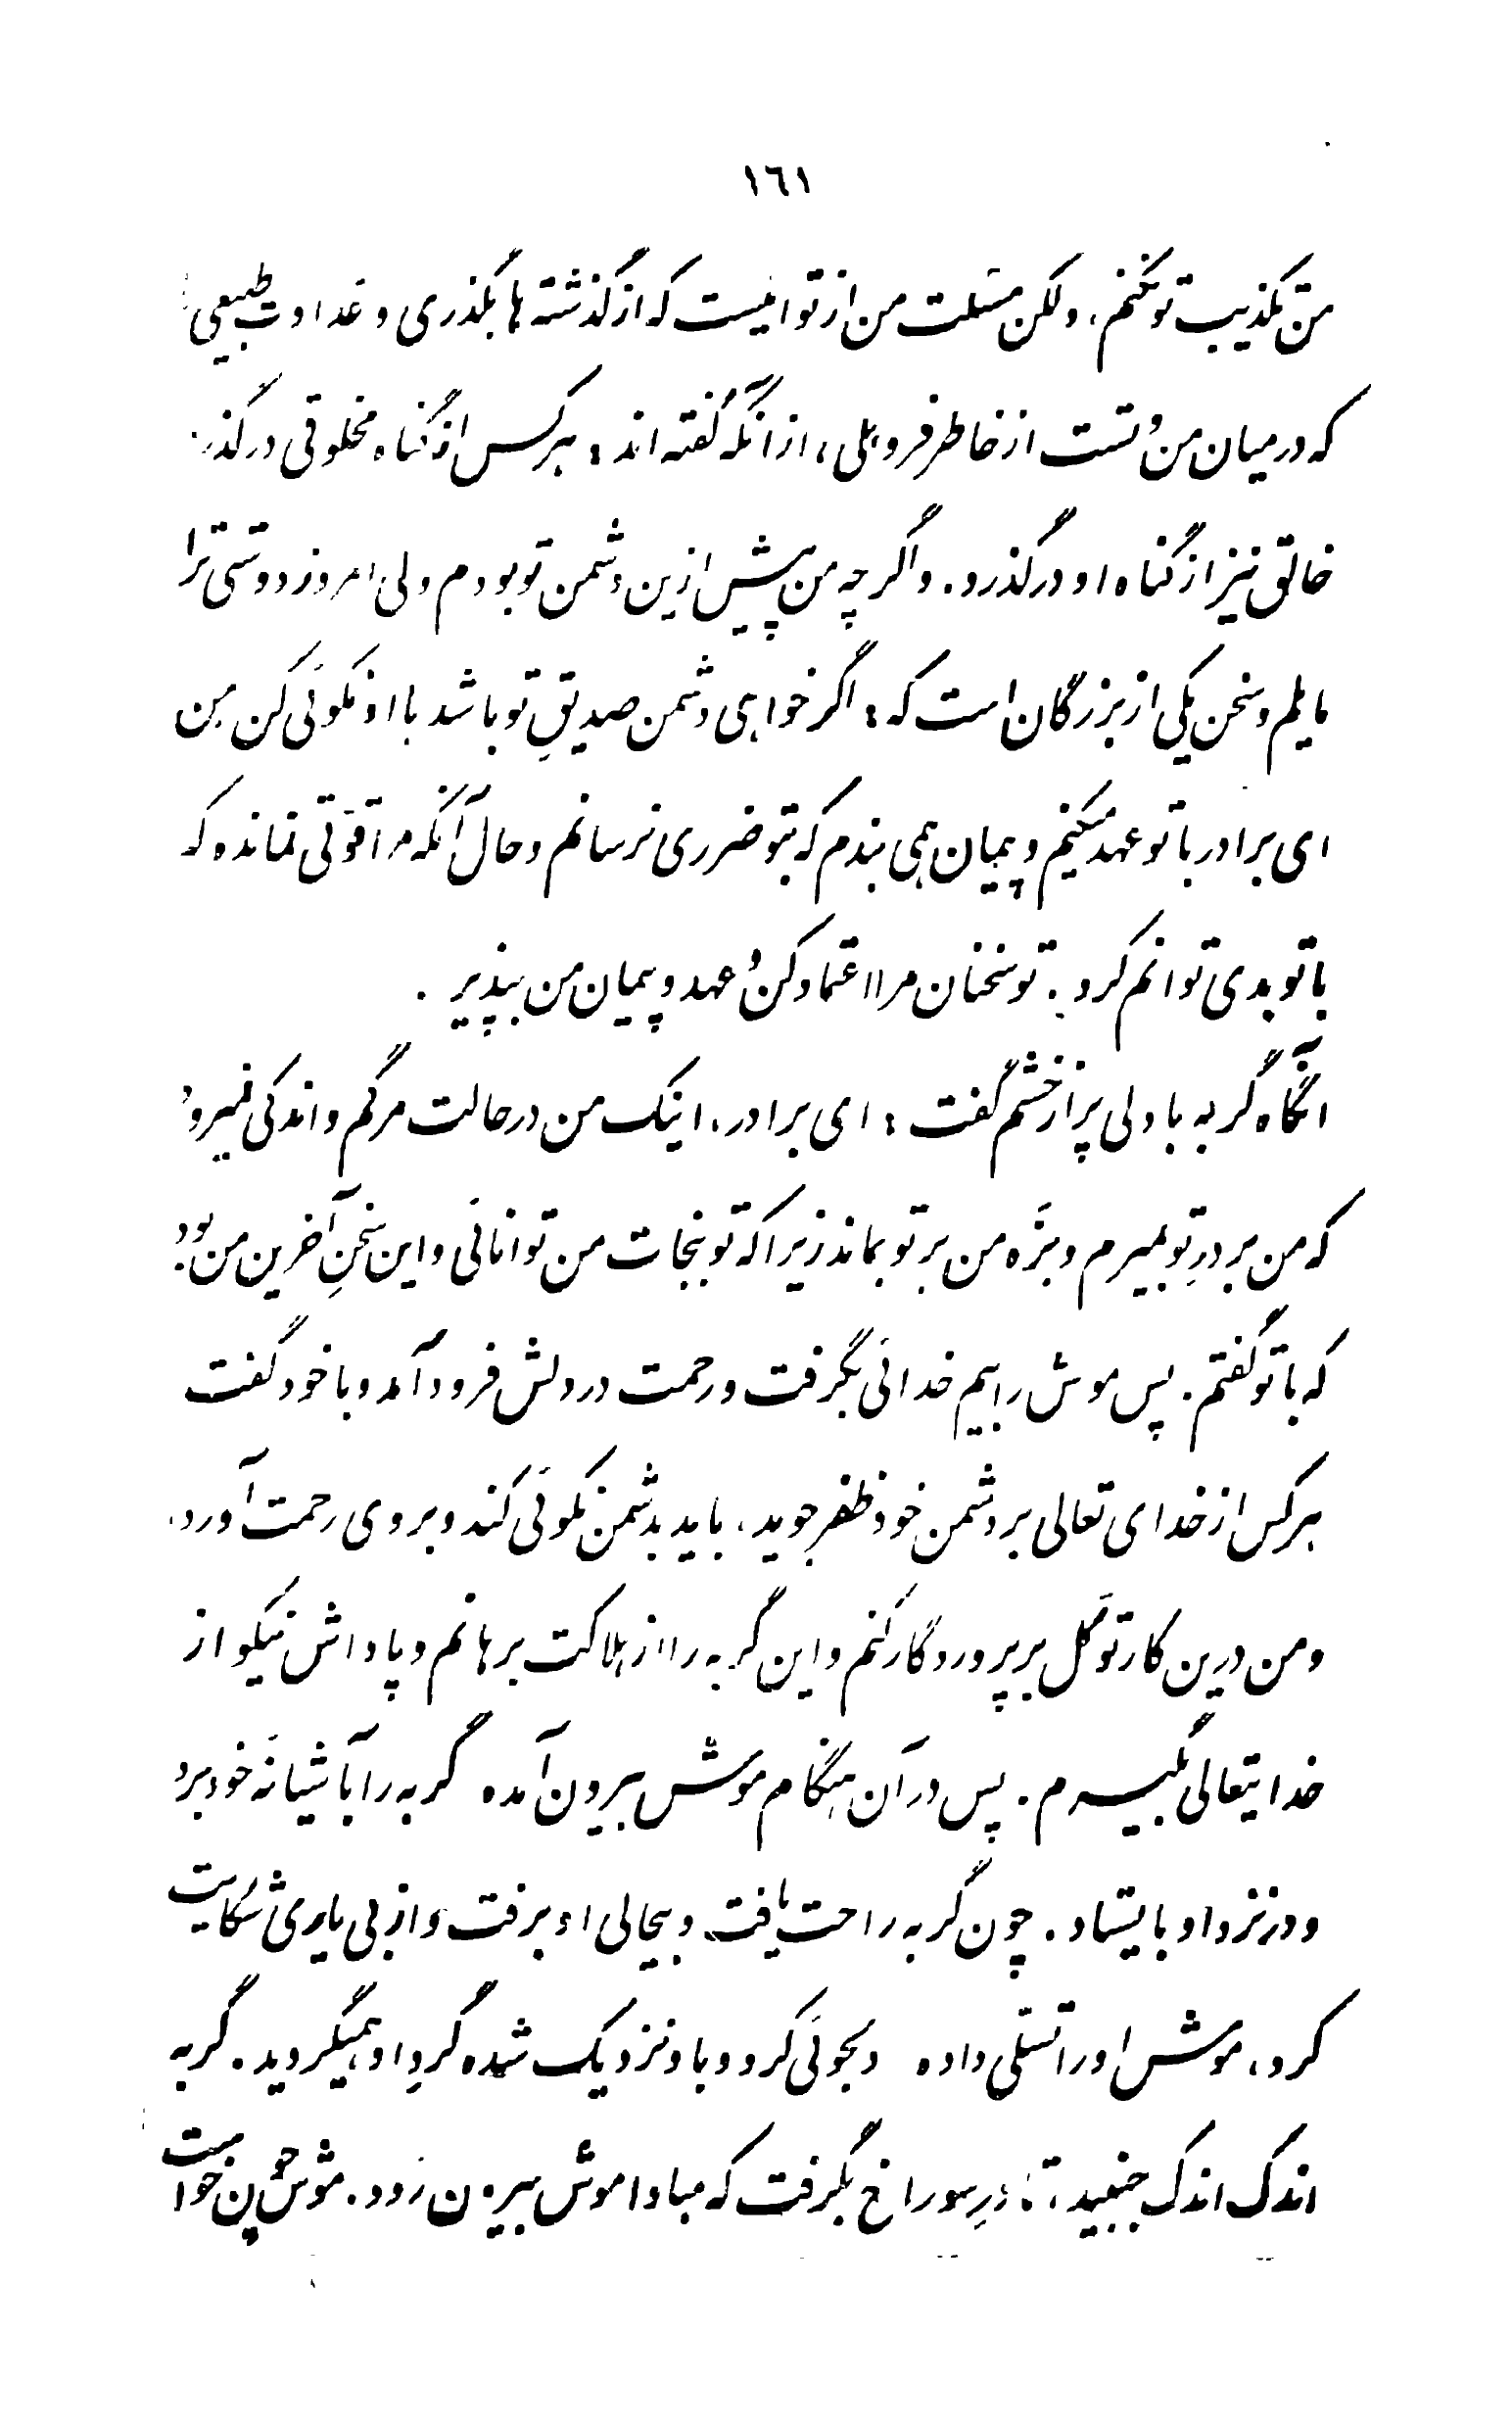 ١٦١
من تکذیب تو نکنم، ولکن مسئلت من از تو اینست که از گذشته ها بگذری و عداوت طبیعی
که در میان من و تست از خاطر فروهلی، از آنکه گفته اند: هرکس از گناه مخلوقی درگذرد
خالق نیز از گناه او درگذرد. و اگر چه من پیش ازین دشمن تو بودم ولی امروز دوستی ترا
مایلم و سخن یکی از بزرگان است که: اگر خواهی دشمن صدیقِ تو باشد با او نکوئی کن من
ای برادر با تو عهد میکنم و پیمان همی بندم که بتو ضرری نرسانم و حال آنکه مرا قوّتی نمانده که
با تو بدی توانم کرد. تو سخنان مرا اعتماد کن و عهد و پیمان من بپذیر.
آنگاه گربه با دلی پر از خشم گفت: ای برادر، اینک من در حالت مرگم و اندکی نمیرود
که من بر درِ تو بمیرم و بزهٔ من بر تو بماند زیرا که تو بنجات من توانائی و این سخنِ آخرین من بود
که با تو گفتم. پس موش را بیم خدائی بگرفت و رحمت در دلش فرود آمد و با خود گفت
هرکس از خدای تعالی بر دشمن خود ظفر جوید، باید بدشمن نکوئی کند و بر وی رحمت آورد.
و من درین کار توکّل بر پروردگار کنم و این گربه را از هلاکت برهانم و پاداش نیکو از
خدایتعالی بگیرم. پس در آن هنگام موش بیرون آمده گربه را بآشیانهٔ خود برد
و در نزد او بایستاد. چون گربه راحت یافت و بیحالی او برفت و از بی یاری شکایت
کرد، موش او را تسلّی داده دلجوئی کرد و باو نزدیک شده گردِ او همیگردید. گربه
اندک اندک جنبید، تا درِ سوراخ بگرفت که مبادا موش بیرون رود. موش چون خواست